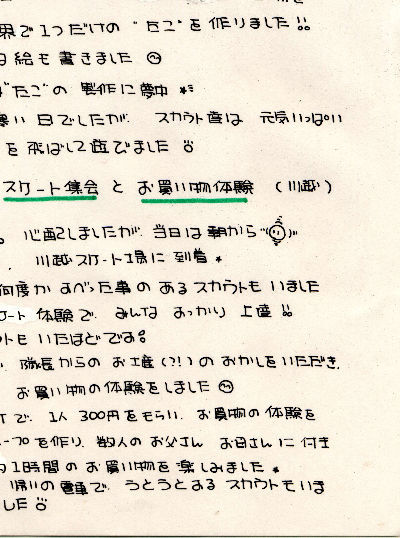 界で1つだけの "たこ"を作りました!!
絵も書きました
"たこ"の 製作に夢中
日でしたが、スカウト達は 元気いっぱい
を飛ばして遊びました
スケート集会 と お買い物体験 (川越)
。心配しましたが、当日は朝から
川越スケート場に到着。
何度かすべった事のあるスカウトもいました
ート体験で、みんな すっかり上達!!
トもいたほどです。
、隊長からの お土産(?!)の おかしをいただき、
お買い物の体験をしました
で、1人 300円をもらい、お買物の体験を
ープを作り、数人の お父さん お母さんに付き
1時間の お買い物を楽しみました。
帰りの電車で、うとうとするスカウトもいま
した